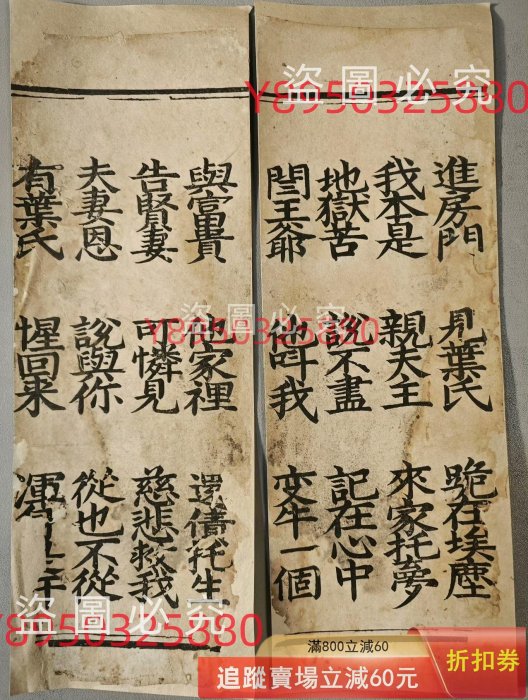 進房門 見葉氏 跪在埃塵
我本是 親夫主 來家托夢
地獄苦 說不盡 記在心中
閆王爺 他叫我 变牛一個
與富貴 他家裡 還債托生
告賢妻 可憐見 慈悲救我
夫妻恩 說與你 從也不從
有葉氏 惺回来
盜圖必究
Y8950325880
盜圖必究
Y8950325880
盜圖必究
Y8950325880
滿800立減60
追蹤賣場立減60元
折扣券